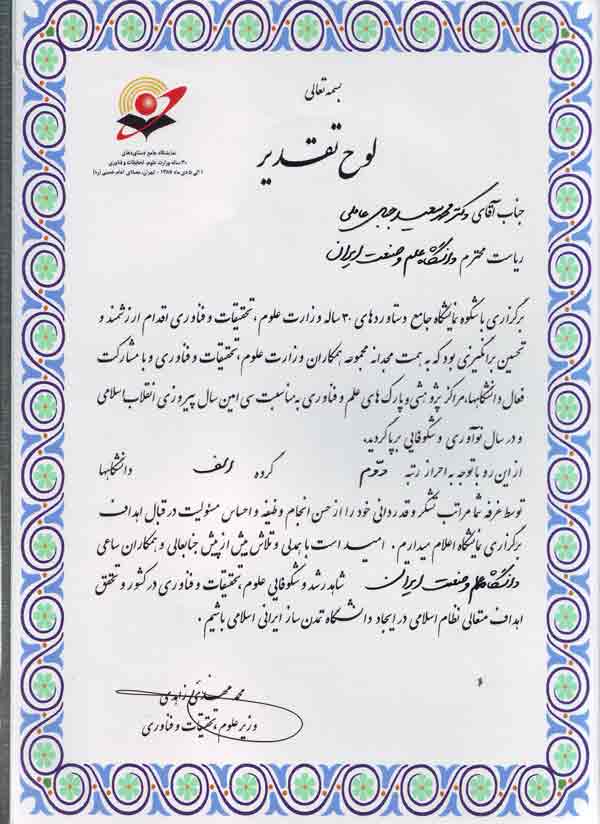 بسمه تعالی
لوح تقدیر
نمایشگاه جامع دستاوردهای
۳۰ ساله وزارت علوم، تحقیقات و فناوری
۱ الی ۵ دی ماه ۱۳۸۷ - تهران، مصلای امام خمینی (ره)
جناب آقای دکتر محمد سعید جبل عاملی
ریاست محترم دانشگاه علم و صنعت ایران
برگزاری باشکوه نمایشگاه جامع دستاوردهای ۳۰ ساله وزارت علوم، تحقیقات و فناوری اقدام ارزشمند و
تحسین برانگیزی بود که به همت مجدانه مجموعه همکاران وزارت علوم، تحقیقات و فناوری و با مشارکت
فعال دانشگاهها، مراکز پژوهشی و پارک های علم و فناوری به مناسبت سی امین سال پیروزی انقلاب اسلامی
و در سال نوآوری و شکوفایی برپا گردید.
از این رو با توجه به احراز رتبه دوم گروه الف دانشگاهها
توسط غرفه شما مراتب تشکر و قدردانی خود را از حسن انجام وظیفه و احساس مسئولیت در قبال اهداف
برگزاری نمایشگاه اعلام میدارم. امید است با همدلی و تلاش بیش از پیش جنابعالی و همکاران ساعی
دانشگاه علم و صنعت ایران شاهد رشد و شکوفایی علوم، تحقیقات و فناوری در کشور و تحقق
اهداف متعالی نظام اسلامی در ایجاد دانشگاه تمدن ساز ایرانی اسلامی باشیم.
محمد مهدی زاهدی
وزیر علوم، تحقیقات و فناوری